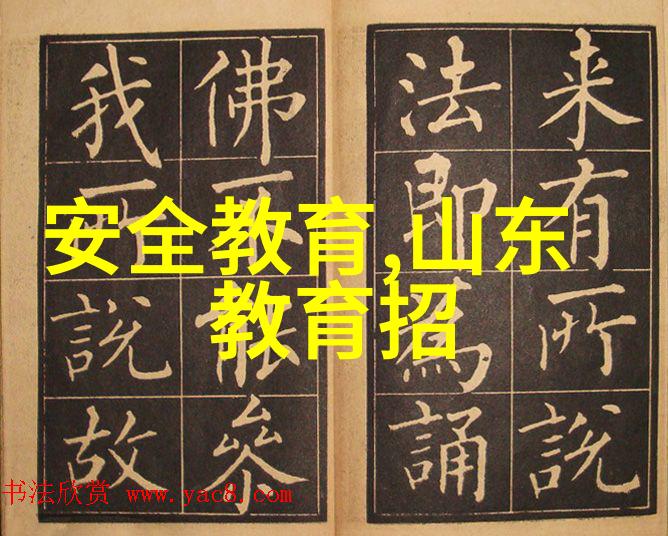 来有所說
法即為誦
佛參
我所說故
安全教育,山东
教育招
书法欣赏 www.yac8.com